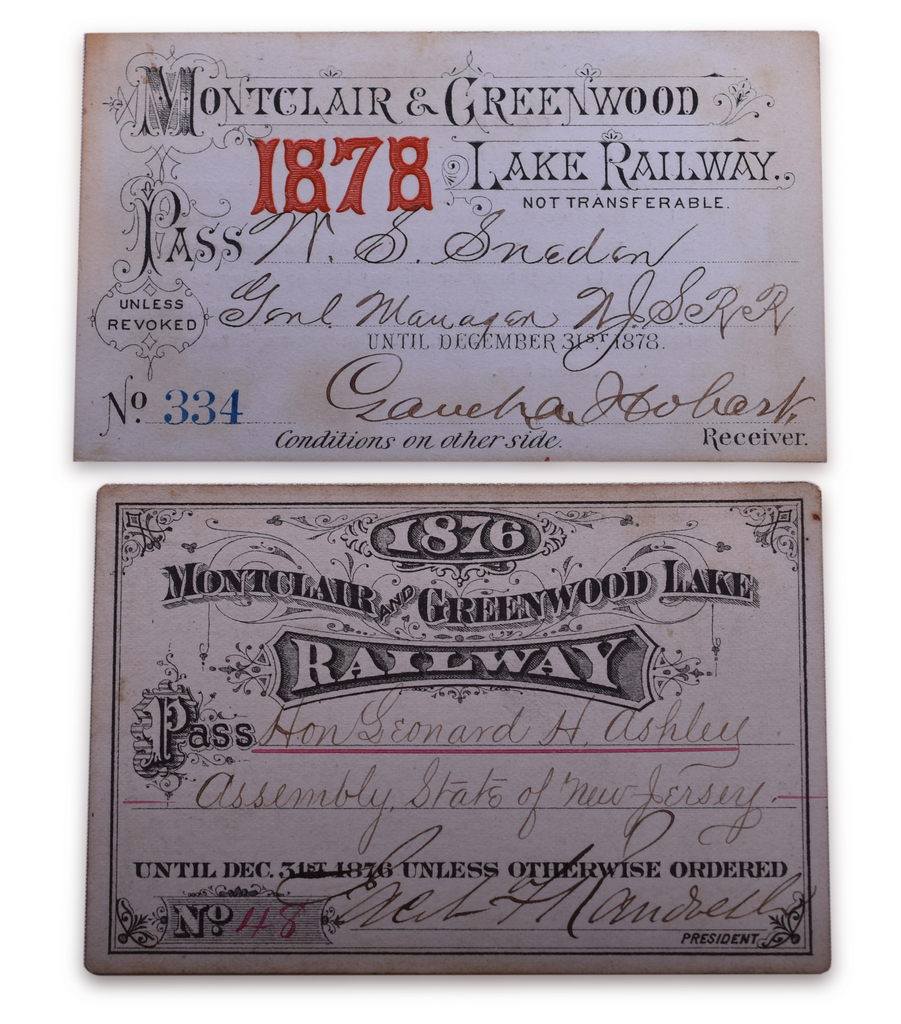 MONTCLAIR & GREENWOOD
1878 LAKE RAILWAY.
NOT TRANSFERABLE.
PASS W. S. Sneden
UNLESS REVOKED
Genl. Manager N.J.S.R.R
UNTIL DECEMBER 31ST 1878.
No. 334
Hobart
Conditions on other side.
Receiver.
1876
MONTCLAIR AND GREENWOOD LAKE
RAILWAY
Pass Hon Leonard H. Ashley
Assembly, State of New Jersey.
UNTIL DEC. 31ST 1876 UNLESS OTHERWISE ORDERED
No. 48
PRESIDENT